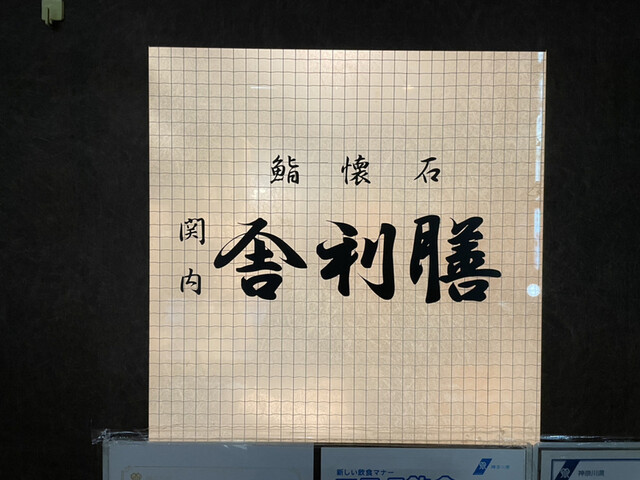 鮨懐石
関内
舎利膳
新しい飲食マナー
神奈川県
神奈川県